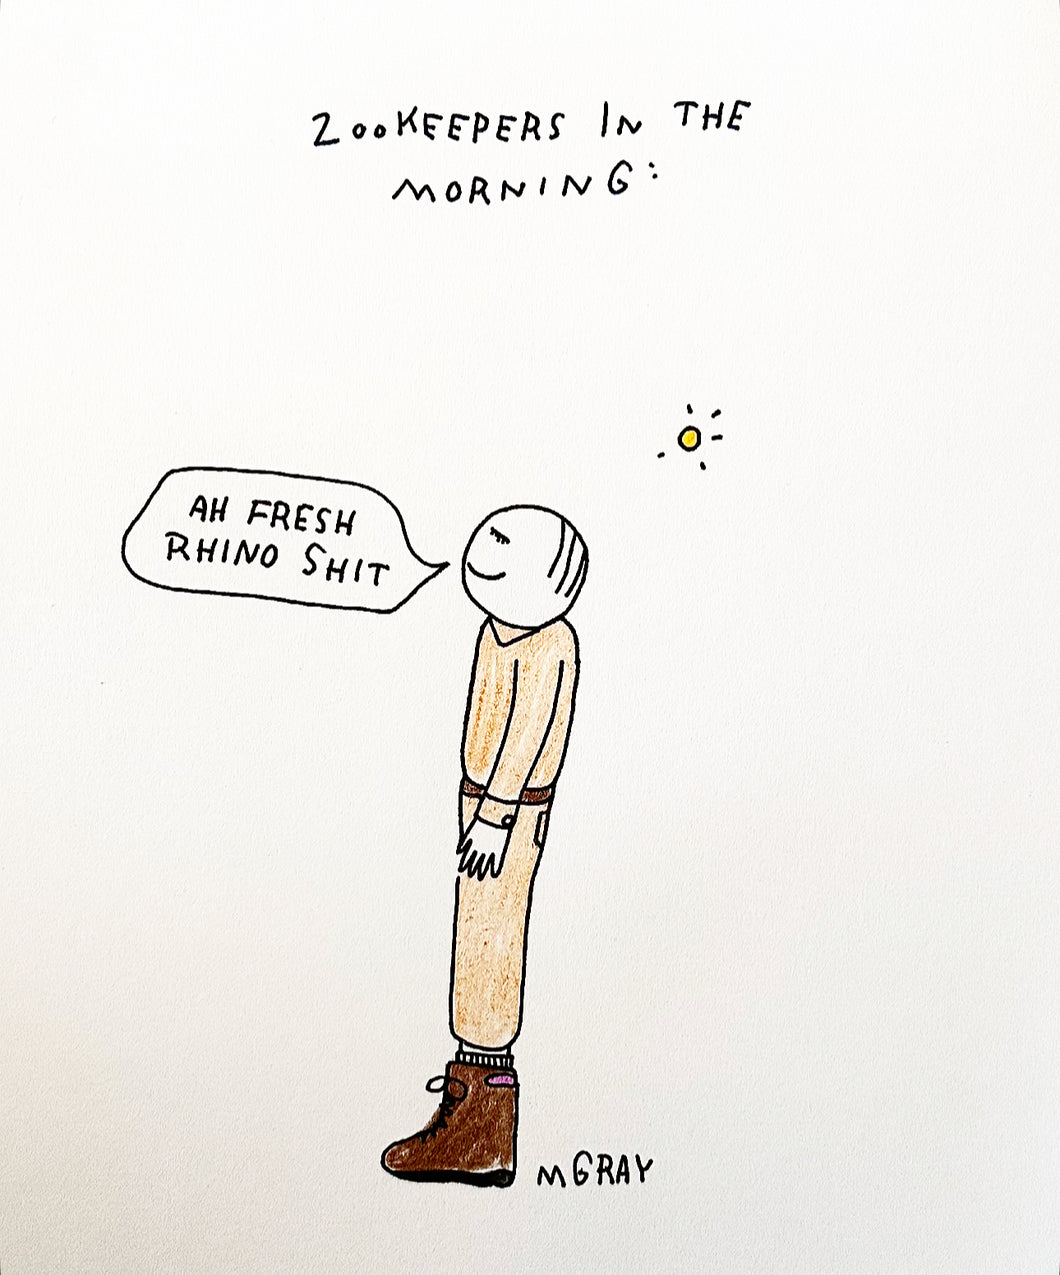 ZOOKEEPERS IN THE
MORNING:
AH FRESH
RHINO SHIT
MGRAY